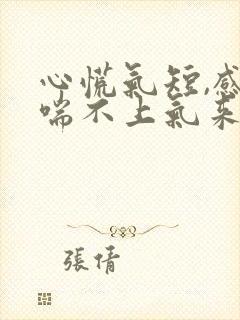 心慌氣短,感
喘不上氣來
張倩